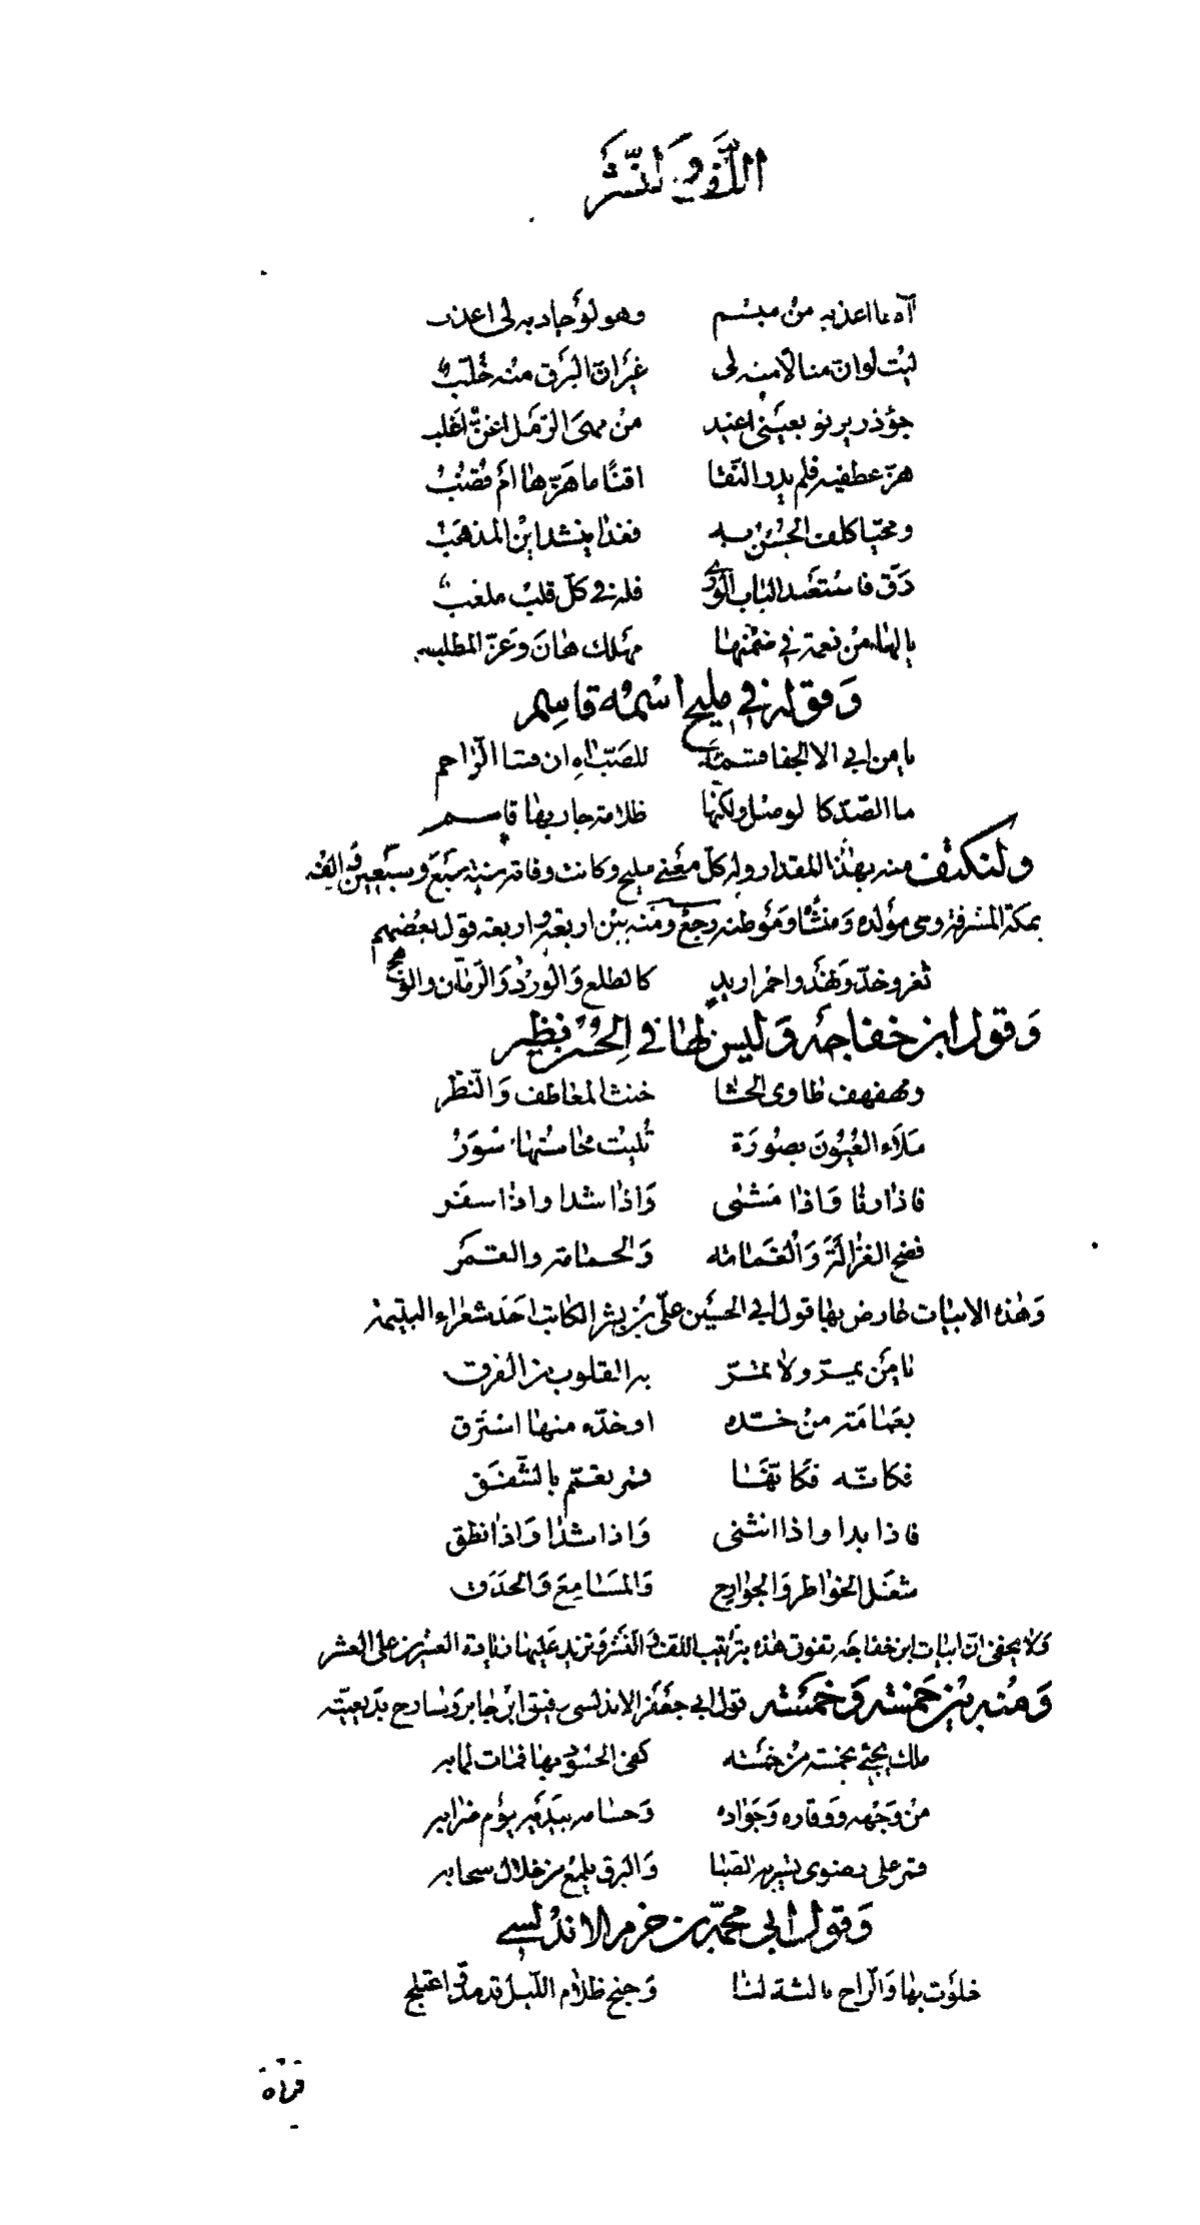 اللف والنشر
آه ما اعذبه من مبسم وهو لو جاد به لى اعذب
ليت لو ان منالا منه لى غير ان البرق منه خلب
جؤذر يرنو بعينى اغيد من مهى الرمل اغن اغلب
هز عطفيه فلم يدر النقا اقنا ما هزها ام قضب
ومحيا كلف الحسن به فغدا ينشد اين المذهب
دق فاستعبد الباب الورى فله في كل قلب ملعب
يا لها من نعمة في ضمنها مهلك هان وعز المطلب
وقوله في مليح اسمه قاسم
يا من ابى الا الجفا قسمة للصب اه ان قسا الراحم
ما الصد كالوصل ولكنها ظلامة جار بها قاسم
ولنكتف منه بهذا المقدار وله كل معنى مليح وكانت وفاته سنة سبع وسبعين والف
بمكة المشرفة وهى مولده ومنشأه وموطنه رجع ومنه بين اربعة واربعة قول بعضهم
ثغر وخد ونهد واحمرار يد كالطلع والورد والرمان والبلح
وقول ابن خفاجه وليس لها في الحسن نظير
ومهفهف طاوى الحشا خنث المعاطف والنظر
ملاء العيون بصورة تليت محاسنها سور
فاذا رنا واذا مشى واذا شدا واذا سفر
فضح الغزالة والغمامة والحمامة والقمر
وهذه الابيات عارض بها قول ابى الحسين على بن بشر الكاتب احد شعراء اليتيمة
يا من يمر ولا تمر به القلوب من الفرق
بعمامة من خده او خده منها استرق
فكانه فكانها قمر يعتم بالشفق
فاذا بدا واذا انثنى واذا شدا واذا نطق
شغل الخواطر والجوارح والمسامع والحدق
ولا يخفى ان ابيات ابن خفاجه تفوق هذه بترتيب اللف والنشر وتزيد عليها زيادة العشرين على العشر
ومنه بين خمسة وخمسة قول ابى جعفر الاندلسى رفيق ابن جابر وشارح بديعيته
ملك يجئ بخمسة من خمسة كفى الحسود بها فمات لما به
من وجهه ووقاره وجواده وحسامه بيديه يوم ضرابه
قمر على رضوى يسير به الصبا والبرق يلمع من خلال سحابه
وقول ابى محمد بن حزم الاندلسى
خلوت بها والراح ثالثة لنا وجنح ظلام الليل قد مد واعتلج
فتاة